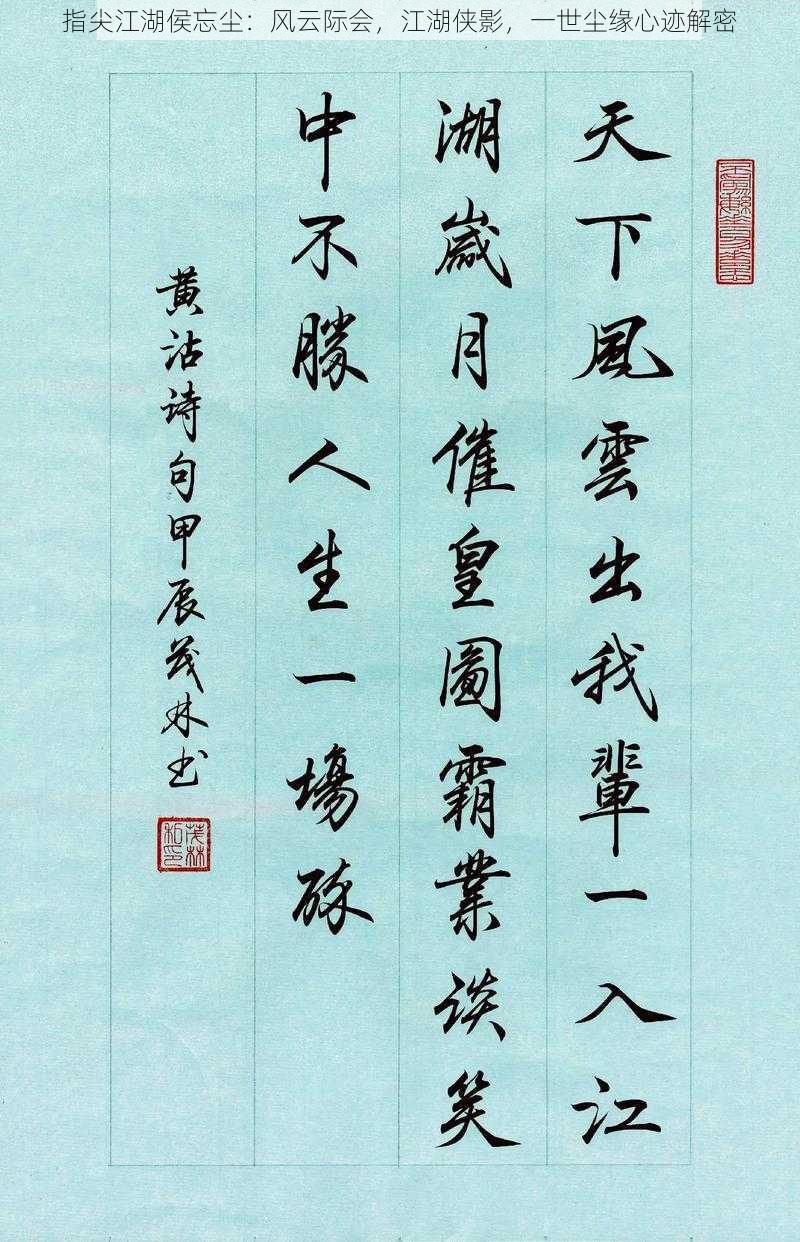 指尖江湖侯忘尘：风云际会，江湖侠影，一世尘缘心迹解密
天下風雲出我輩一入江
湖嵗月催皇圖霸業談笑
中不勝人生一場酔
黄沾诗句甲辰茂林书
茂林和印